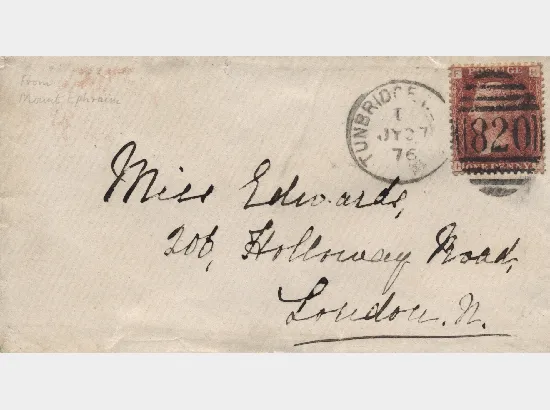 From
Mount Ephraim
TUNBRIDGE
JY 27
76
POSTAGE
820
ONE PENNY
Miss Edwards,
206, Holloway Road,
London. N.